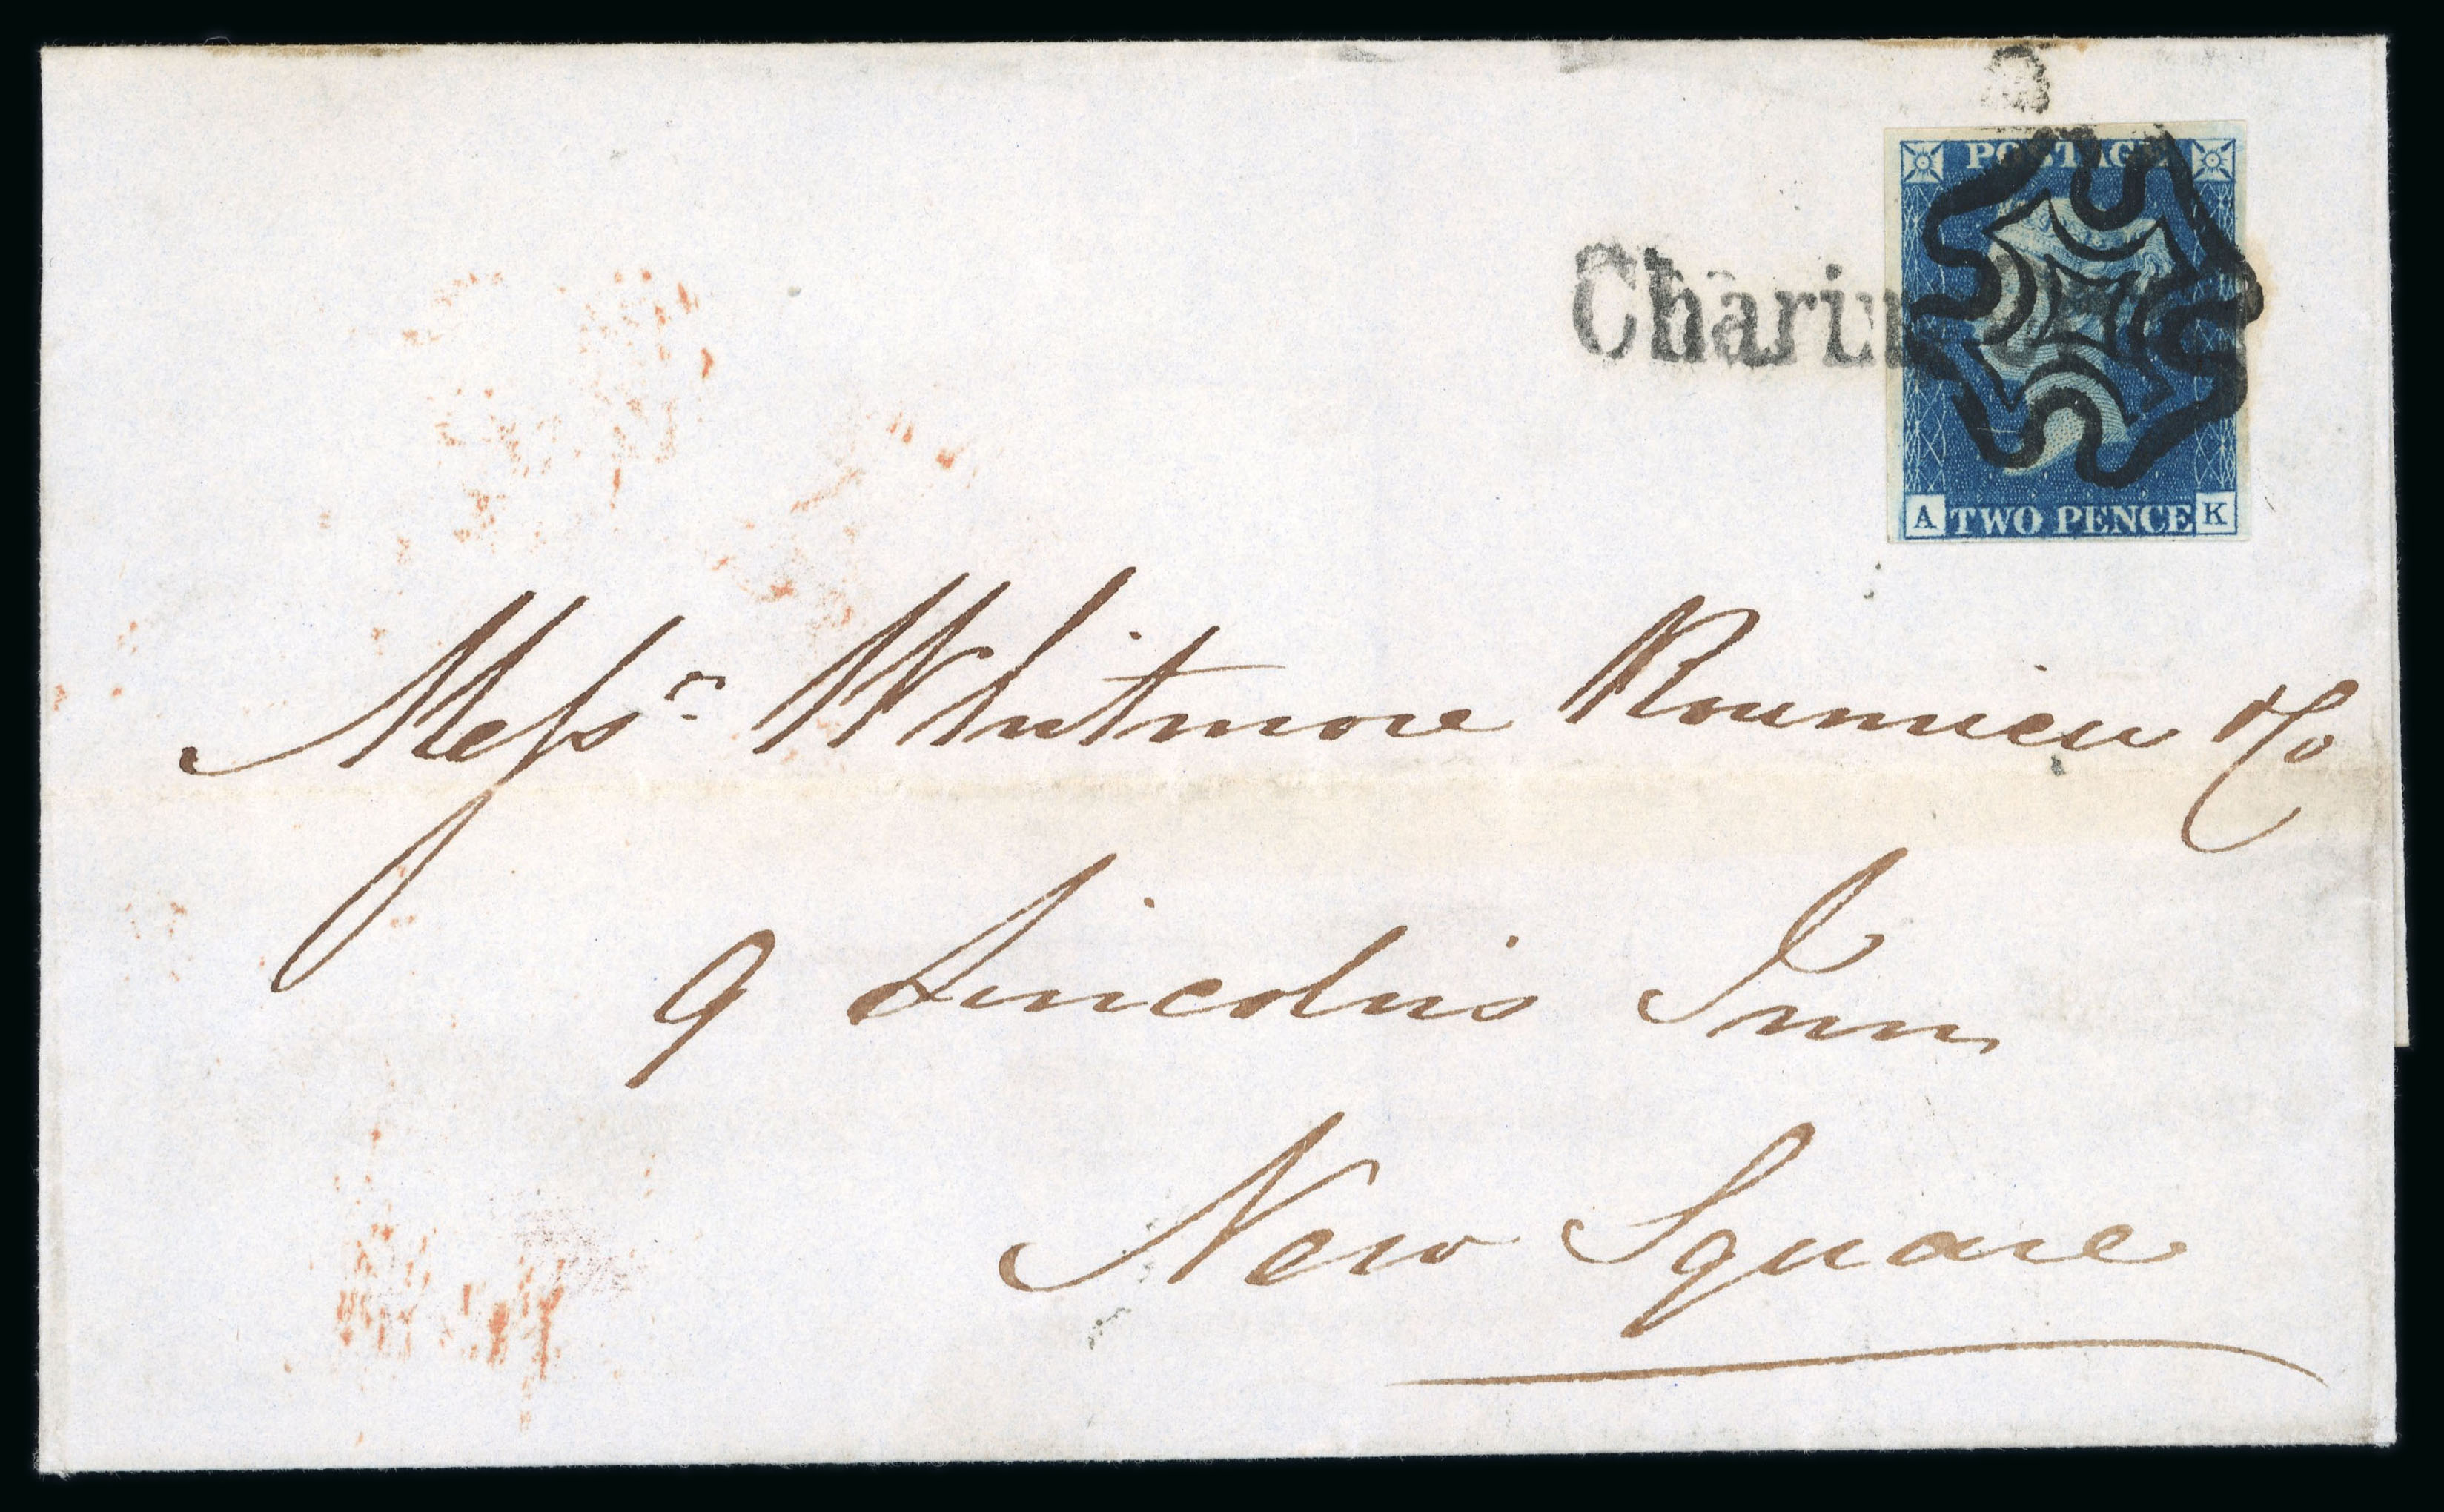 POSTAGE
Charin
A TWO PENCE K
Messrs Whitmore Roumieu & Co
9 Lincolns Inn
New Square